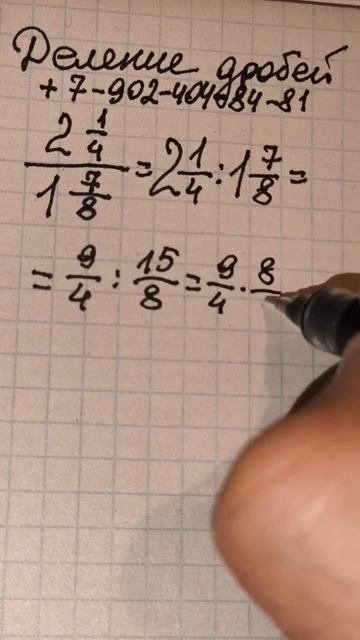 Деление дробей
+7-902-404-84-81
2 1/4 / 1 7/8 = 2 1/4 : 1 7/8 =
= 9/4 : 15/8 = 9/4 · 8/